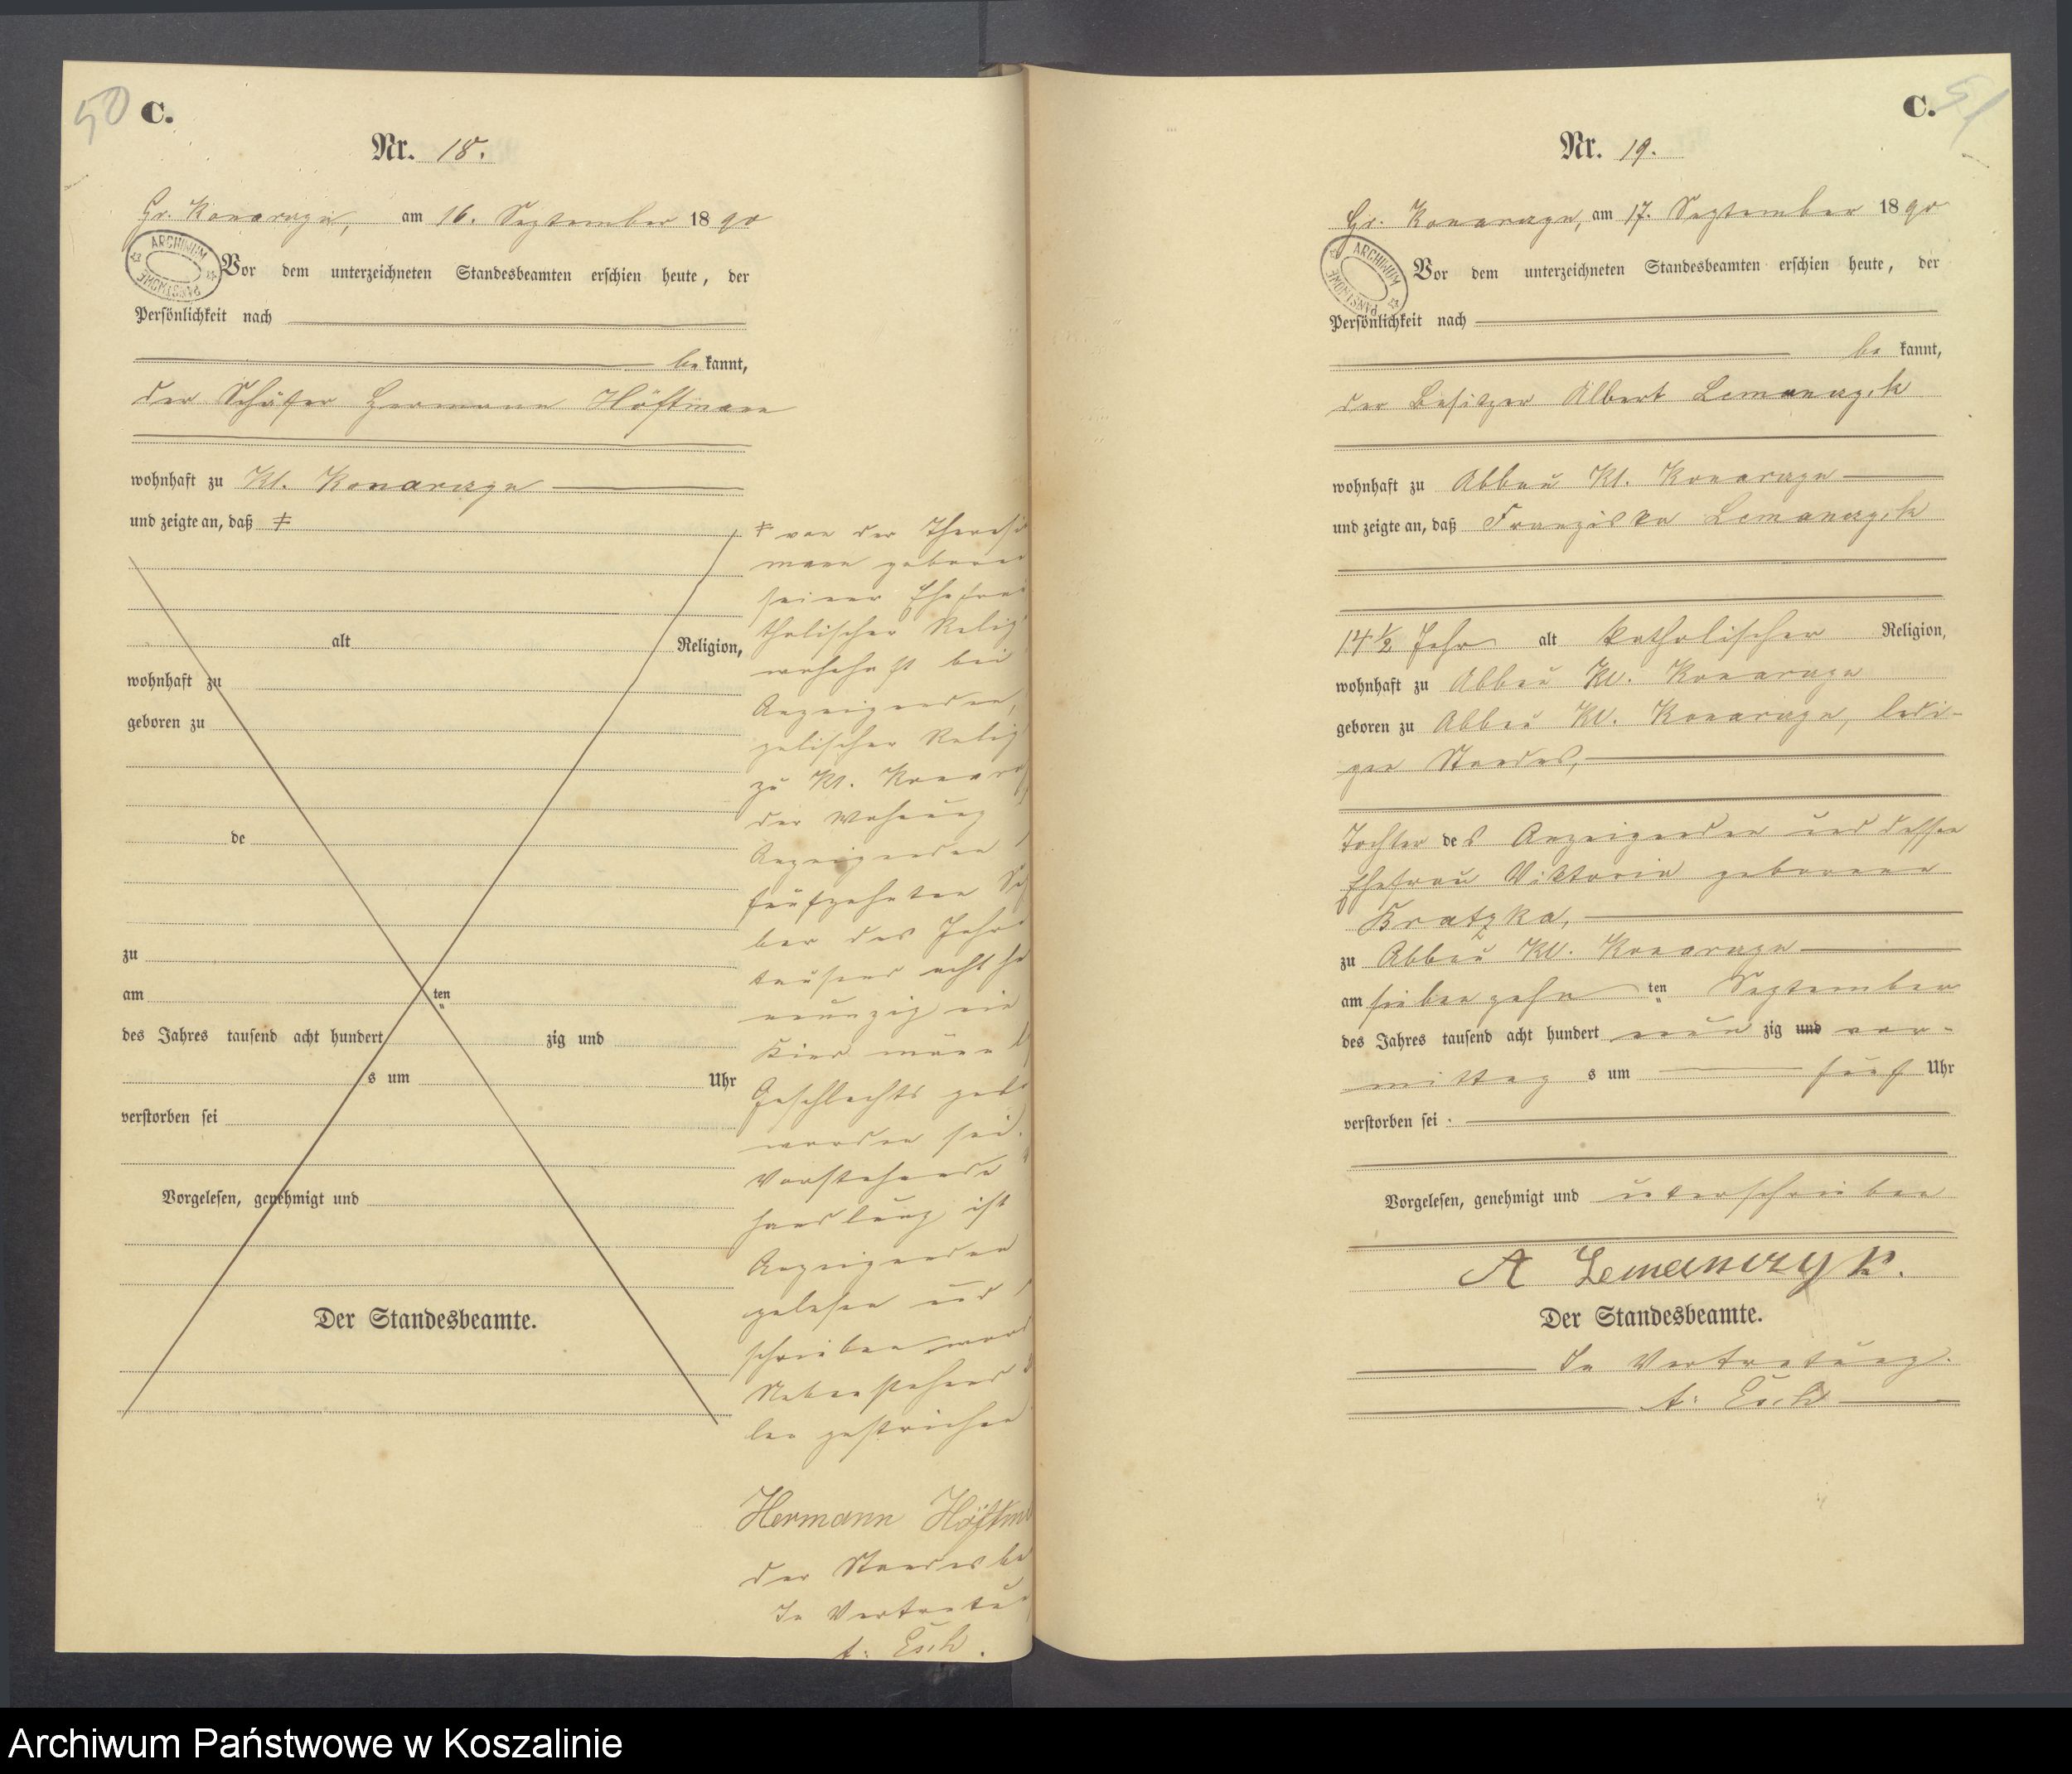 50 C.
Nr. 18.
Gr. Konarczyn, am 16. September 1890
ARCHIWUM PAŃSTWOWE
Vor dem unterzeichneten Standesbeamten erschien heute, der
Persönlichkeit nach
be kannt,
der Schäfer Hermann Höftmann
wohnhaft zu Kl. Konarczyn
und zeigte an, daß ‡
alt Religion,
wohnhaft zu
geboren zu
de
zu
am ten
des Jahres tausend acht hundert zig und
s um Uhr
verstorben sei
Vorgelesen, genehmigt und
Der Standesbeamte.
‡ von der Theresi
mann geborene
seiner Ehefrau
tholischer Relig
wohnhaft bei
Anzeigenden,
gelischer Relig
zu Kl. Konarc
der Wohnung
Anzeigenden
fünfzehnten Se
ber des Jahre
tausend acht hu
neunzig ein
Kind männl
Geschlechts geb
worden sei.
Vorstehende
handlung ist
Anzeigenden
gelesen und
schrieben word
Nebenstehend
len gestrichen
Hermann Höftm
der Standesbe
In Vertretu
A. Esch.
C. 51
Nr. 19.
Gr. Konarczyn, am 17. September 1890
ARCHIWUM PAŃSTWOWE
Vor dem unterzeichneten Standesbeamten erschien heute, der
Persönlichkeit nach
be kannt,
der Besitzer Albert Lemanczyk
wohnhaft zu Abbau Kl. Konarczyn
und zeigte an, daß Franziska Lemanczyk
14½ Jahr alt katholischer Religion,
wohnhaft zu Abbau Kl. Konarczyn
geboren zu Abbau Kl. Konarczyn, ledi-
gen Standes,
Tochter des Anzeigenden und dessen
Ehefrau Viktoria geborenen
Bratzka,
zu Abbau Kl. Konarczyn
am siebenzehn ten September
des Jahres tausend acht hundert neun zig und vor-
mittag s um fünf Uhr
verstorben sei.
Vorgelesen, genehmigt und unterschrieben
A Lemanczyk.
Der Standesbeamte.
In Vertretung.
A. Esch
Archiwum Państwowe w Koszalinie